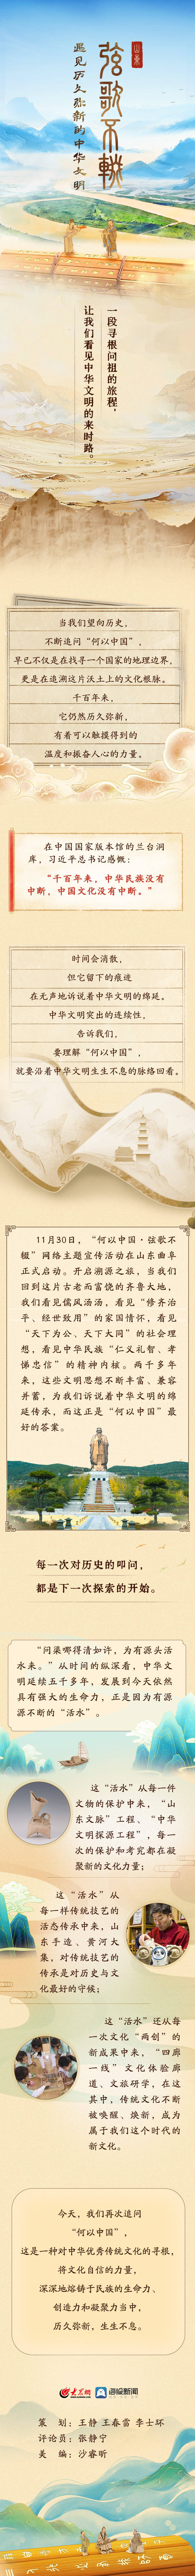 山东
弦歌不辍
遇见历久弥新的中华文明
一段寻根问祖的旅程，
让我们看见中华文明的来时路。
当我们望向历史，
不断追问“何以中国”，
早已不仅是在找寻一个国家的地理边界，
更是在追溯这片沃土上的文化根脉。
千百年来，
它仍然历久弥新，
有着可以触摸得到的
温度和振奋人心的力量。
在中国国家版本馆的兰台洞
库，习近平总书记感慨：
“千百年来，中华民族没有
中断，中国文化没有中断。”
时间会消散，
但它留下的痕迹
在无声地诉说着中华文明的绵延。
中华文明突出的连续性，
告诉我们，
要理解“何以中国”，
就要沿着中华文明生生不息的脉络回看。
11月30日，“何以中国·弦歌不
辍”网络主题宣传活动在山东曲阜
正式启动。开启溯源之旅，当我们
回到这片古老而富饶的齐鲁大地，
我们看见儒风汤汤，看见“修齐治
平、经世致用”的家国情怀，看见
“天下为公、天下大同”的社会理
想，看见中华民族“仁义礼智、孝
悌忠信”的精神内核。两千多年
来，这些文明思想不断丰富、兼容
并蓄，为我们诉说着中华文明的绵
延传承，而这正是“何以中国”最
好的答案。
每一次对历史的叩问，
都是下一次探索的开始。
“问渠哪得清如许，为有源头活
水来。”从时间的纵深看，中华文
明延续五千多年，发展到今天依然
具有强大的生命力，正是因为有源
源不断的“活水”。
这“活水”从每一件
文物的保护中来，“山
东文脉”工程、“中华
文明探源工程”，每一
次的保护和考究都在凝
聚新的文化力量；
这“活水”从
每一样传统技艺的
活态传承中来，山
东手造、黄河大
集，对传统技艺的
传承是对历史与文
化最好的守候；
这“活水”还从每
一次文化“两创”的
新成果中来，“四廊
一线”文化体验廊
道、文旅研学，在这
其中，传统文化不断
被唤醒、焕新，成为
属于我们这个时代的
新文化。
今天，我们再次追问
“何以中国”，
这是一种对中华优秀传统文化的寻根，
将文化自信的力量，
深深地熔铸于民族的生命力、
创造力和凝聚力当中，
历久弥新，生生不息。
大众网 海报新闻
策 划：王静 王春蕾 李士环
评论员：张静宁
美 编：沙睿昕